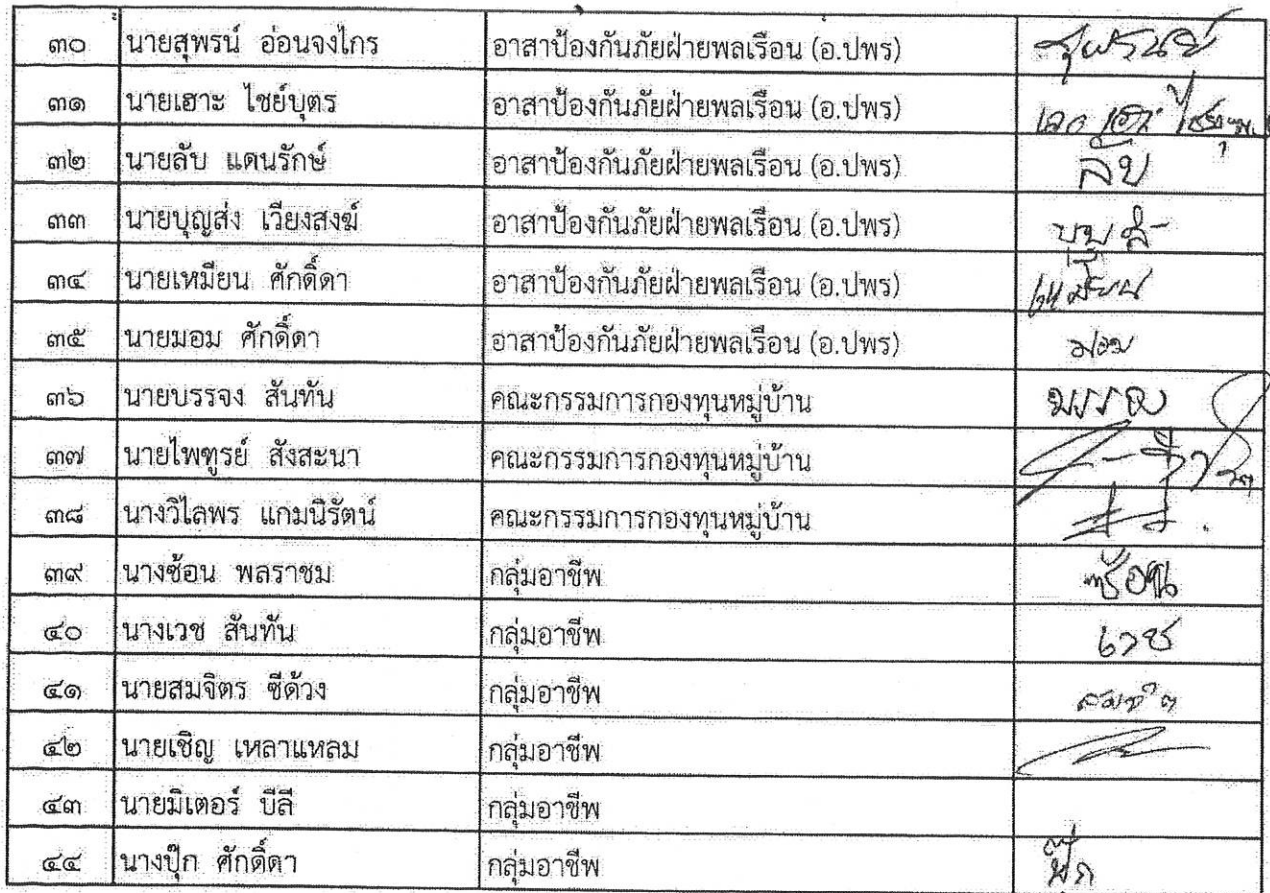 ๓๐ นายสุพรน์ อ่อนจงไกร อาสาป้องกันภัยฝ่ายพลเรือน (อ.ปพร) สุพรนย์
๓๑ นายเฮาะ ไชย์บุตร อาสาป้องกันภัยฝ่ายพลเรือน (อ.ปพร)
๓๒ นายลับ แดนรักษ์ อาสาป้องกันภัยฝ่ายพลเรือน (อ.ปพร) ลับ
๓๓ นายบุญส่ง เวียงสงฆ์ อาสาป้องกันภัยฝ่ายพลเรือน (อ.ปพร)
๓๔ นายเหมียน ศักดิ์ดา อาสาป้องกันภัยฝ่ายพลเรือน (อ.ปพร) เหมียน
๓๕ นายมอม ศักดิ์ดา อาสาป้องกันภัยฝ่ายพลเรือน (อ.ปพร) มอม
๓๖ นายบรรจง สันทัน คณะกรรมการกองทุนหมู่บ้าน
๓๗ นายไพฑูรย์ สังสะนา คณะกรรมการกองทุนหมู่บ้าน
๓๘ นางวิไลพร แกมนิรัตน์ คณะกรรมการกองทุนหมู่บ้าน
๓๙ นางซ้อน พลราชม กลุ่มอาชีพ ซ้อน
๔๐ นางเวช สันทัน กลุ่มอาชีพ เวช
๔๑ นายสมจิตร ซีด้วง กลุ่มอาชีพ
๔๒ นายเชิญ เหลาแหลม กลุ่มอาชีพ
๔๓ นายมิเตอร์ บีลี กลุ่มอาชีพ
๔๔ นางปุ๊ก ศักดิ์ดา กลุ่มอาชีพ ปุ๊ก